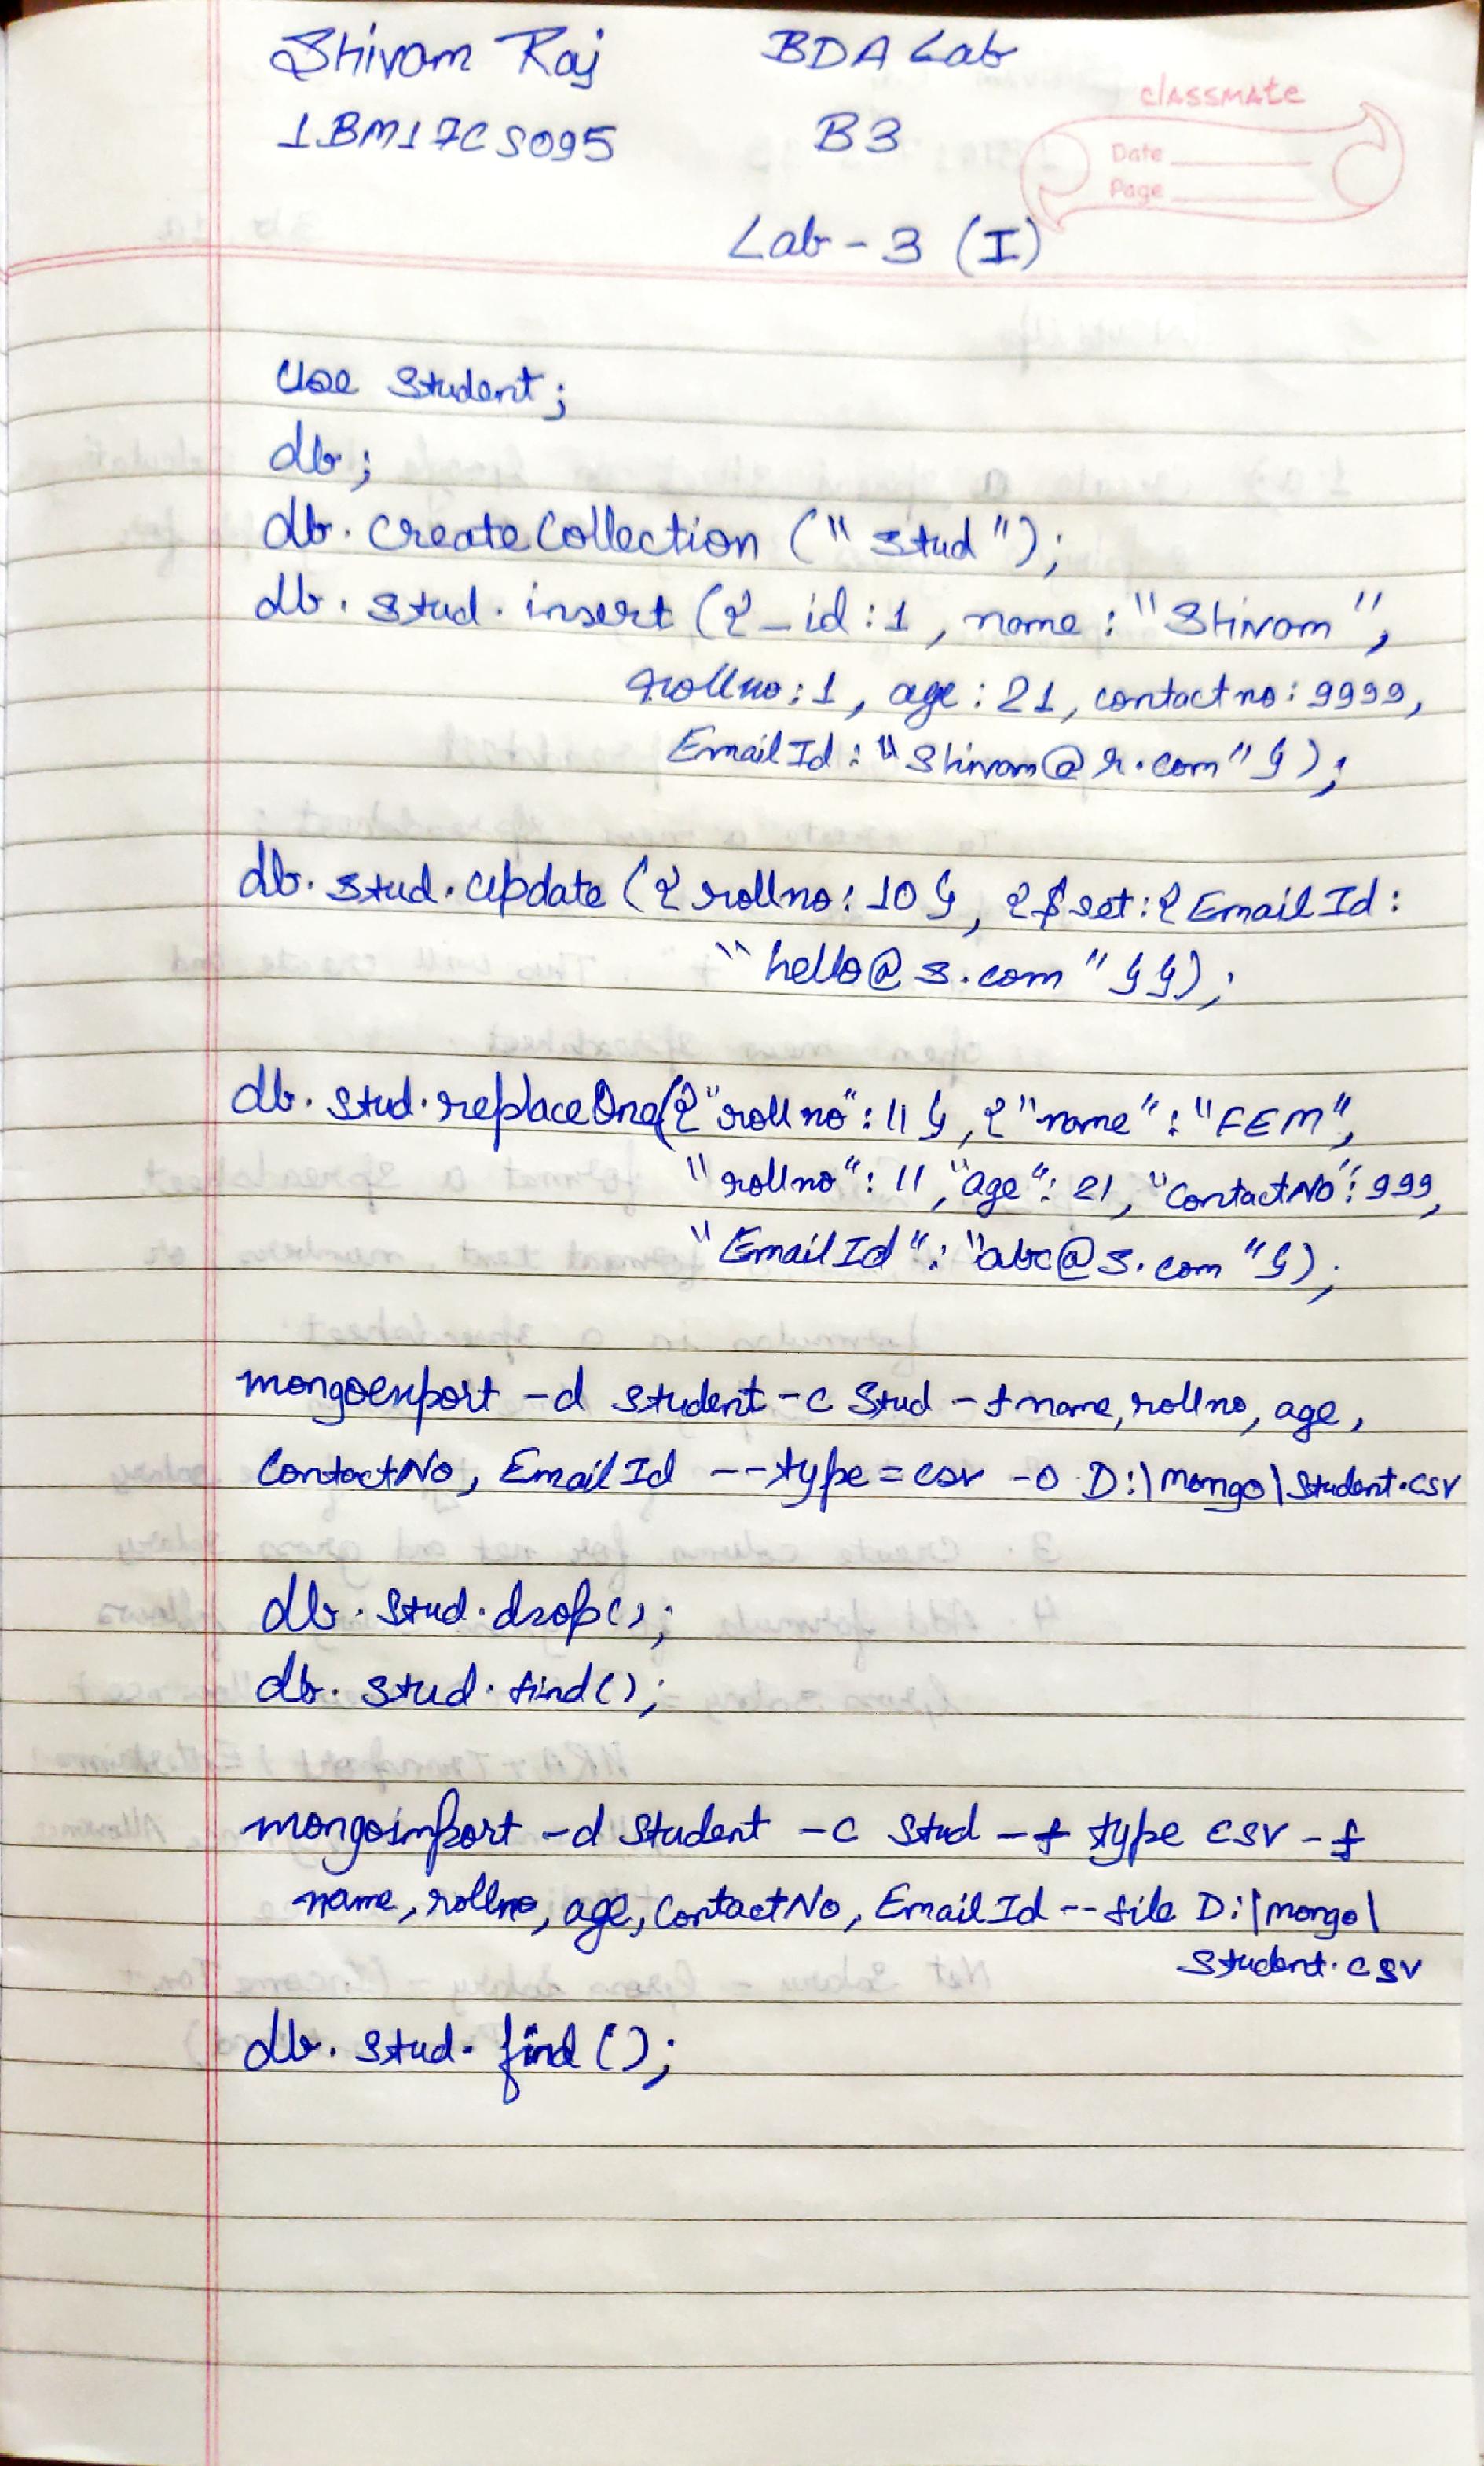 Shivam Raj BDA Lab
1BM17CS095 B3
classmate
Date
Page
Lab - 3 (I)
Use Student;
db;
db.createCollection ("stud");
db.stud.insert ({_id:1, name: "Shivam",
rollno:1, age:21, contactno:9999,
EmailId: "Shivam@r.com"});
db.stud.update ({rollno:10}, {$set:{EmailId:
"hello@s.com"}});
db.stud.replaceOne({"rollno":11}, {"name":"FEM",
"rollno":11,"age":21,"ContactNo":999,
"EmailId":"abc@s.com"});
mongoexport -d student -c Stud -f name,rollno,age,
ContactNo, EmailId --type=csv -o D:\mongo\Student.csv
db.stud.drop();
db.stud.find();
mongoimport -d Student -c Stud -f type csv -f
name,rollno,age,ContactNo,EmailId --file D:\mongo\
student.csv
db.stud.find();